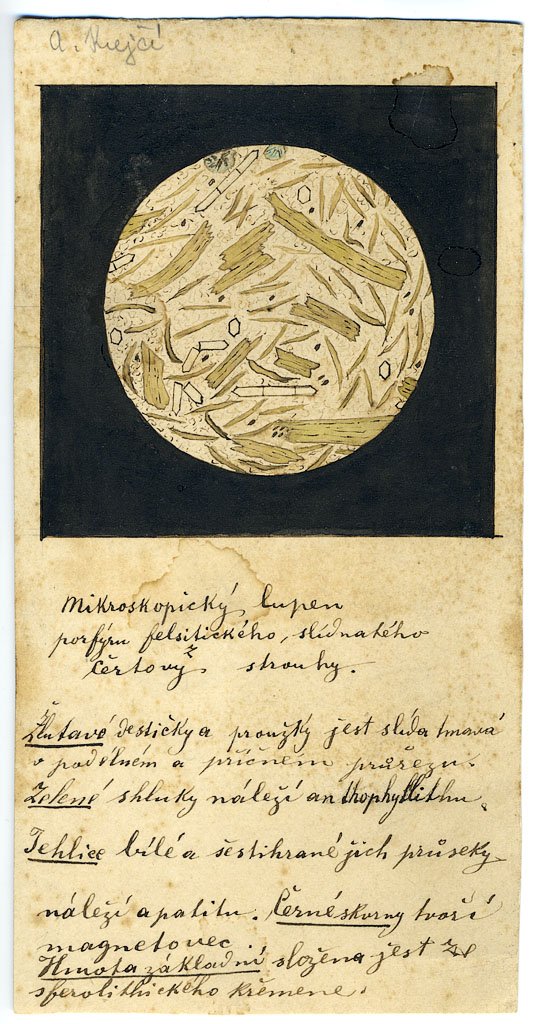 A. Krejčí
Mikroskopický lupen
porfýru felsitického, slídnatého
z Čertový strouhy.
Žlutavé destičky a proužky jest slída tmavá
v podélném a příčném průřezu.
Zelené shluky náleží anthophyllithu.
Jehlice bílé a šestihrané jich průseky
náleží apatitu. Černé skvrny tvoří
magnetovec
Hmota základní složena jest ze
sferolithického křemene.